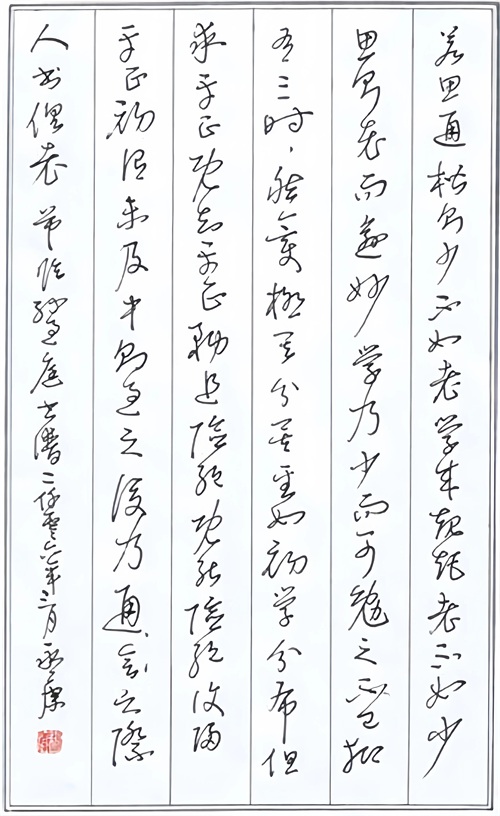 若思通楷则少不如老学成规矩老不如少
思则老而逾妙学乃少而可勉之不已抑
有三时、然一变极其分矣至如初学分布但
求平正既知平正务追险绝既能险绝复归
平正初谓未及中则过之后乃通、会之际
人书俱老 节临孙过庭书谱二仟零六年三月